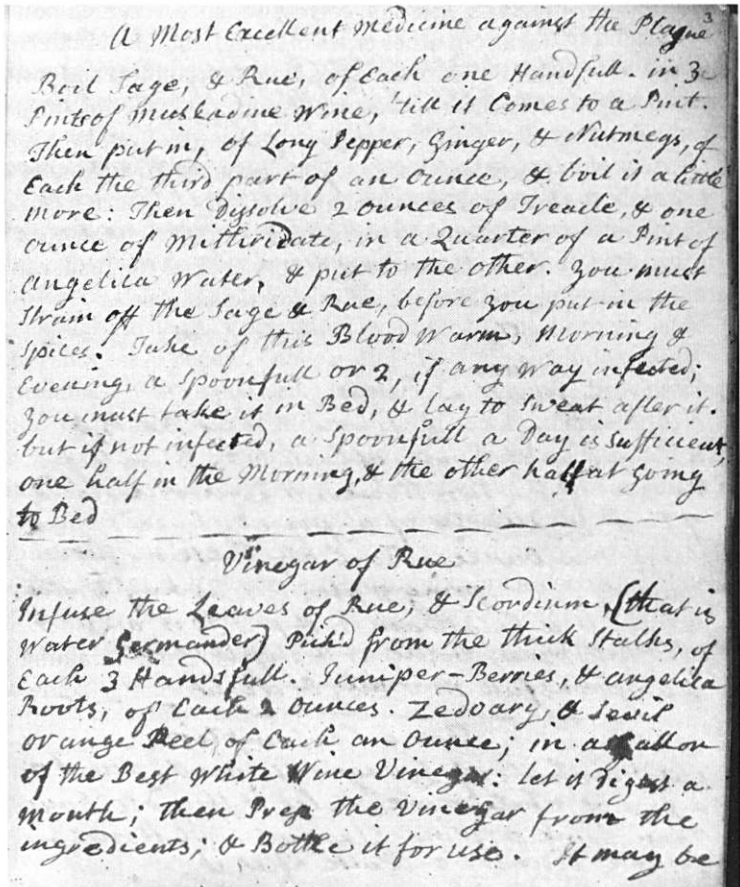 3
A Most Excellent Medicine against the Plague
Boil Sage, & Rue, of Each one Handfull. in 3
Pints of Muskadine Wine, 'till it Comes to a Pint.
Then put in, of Long Pepper, Ginger, & Nutmegs, of
Each the third part of an ounce, & boil it a little
more: Then Dissolve 2 ounces of Treacle, & one
ounce of Mithridate, in a Quarter of a Pint of
Angelica Water, & put to the other. You must
Strain off the Sage & Rue, before you put in the
Spices. Take of this Blood Warm, Morning &
Evening, a Spoonfull or 2, if any way infected;
You must take it in Bed, & lay to Sweat after it.
but if not infected, a Spoonfull a Day is Sufficient,
one half in the Morning, & the other half at Going
to Bed
Vinegar of Rue
Infuse the Leaves of Rue, & Scordium, (that is
Water Germander) Pick'd from the thick Stalks, of
Each 3 Handsfull. Juniper-Berries, & Angelica
Roots, of Each 2 ounces. Zedoary, & Sevil
orange Peel, of Each an ounce; in a Gallon
of the Best White Wine Vinegar: let it Digest a
Month; then Press the Vinegar from the
ingredients; & Bottle it for use. It may be